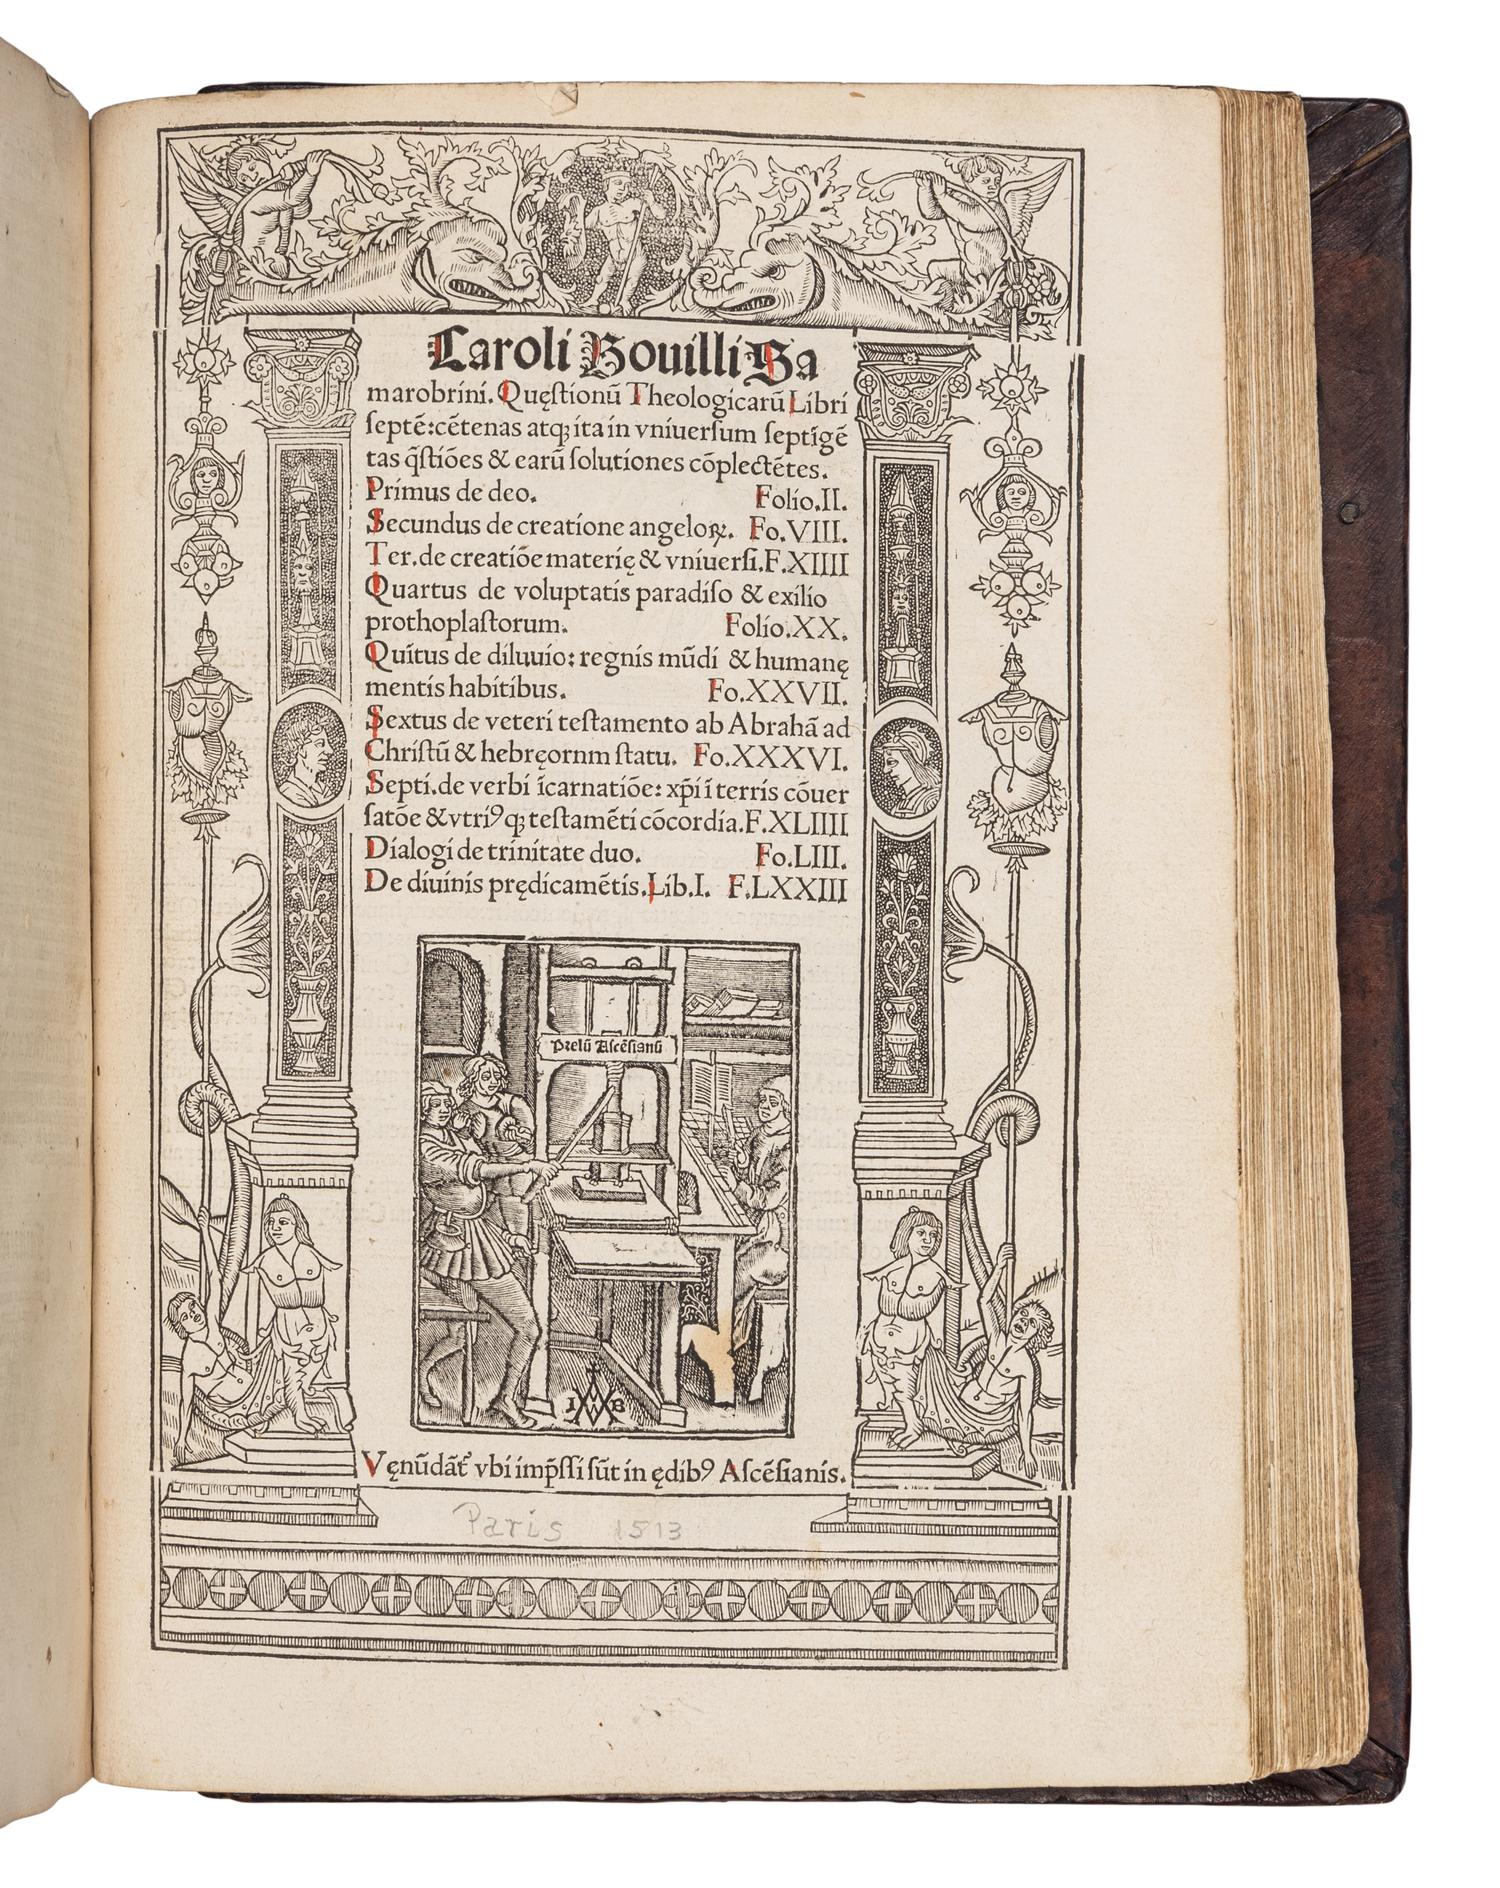 Caroli Bouilli Sa
marobrini. Quęſtionũ Theologicarũ Libri
ſeptẽ: cẽtenas atqꝫ ita in vniuerſum ſeptĩgẽ
tas q̃ſtiões & earũ ſolutiones cõplectẽtes.
Primus de deo. Folio.II.
Secundus de creatione angeloꝝ. Fo.VIII.
Ter.de creatiõe materię & vniuerſi.F.XIIII
Quartus de voluptatis paradiſo & exilio
prothoplaſtorum. Folio.XX.
Quĩtus de diluuio: regnis mũdi & humanę
mentis habitibus. Fo.XXVII.
Sextus de veteri teſtamento ab Abrahã ad
Chriſtũ & hebręornm ſtatu. Fo.XXXVI.
Septi.de verbi ĩcarnatiõe: xp̃i ĩ terris cõuer
ſatõe & vtriꝰqꝫ teſtamẽti cõcordia.F.XLIIII
Dialogi de trinitate duo. Fo.LIII.
De diuinis prędicamẽtis.Lib.I. F.LXXIII
Prelũ Aſcẽſianũ
I B
Vęnũdãt᷑ vbi imp̃ſſi ſũt in ędibꝰ Aſcẽſianis.
Paris 1513